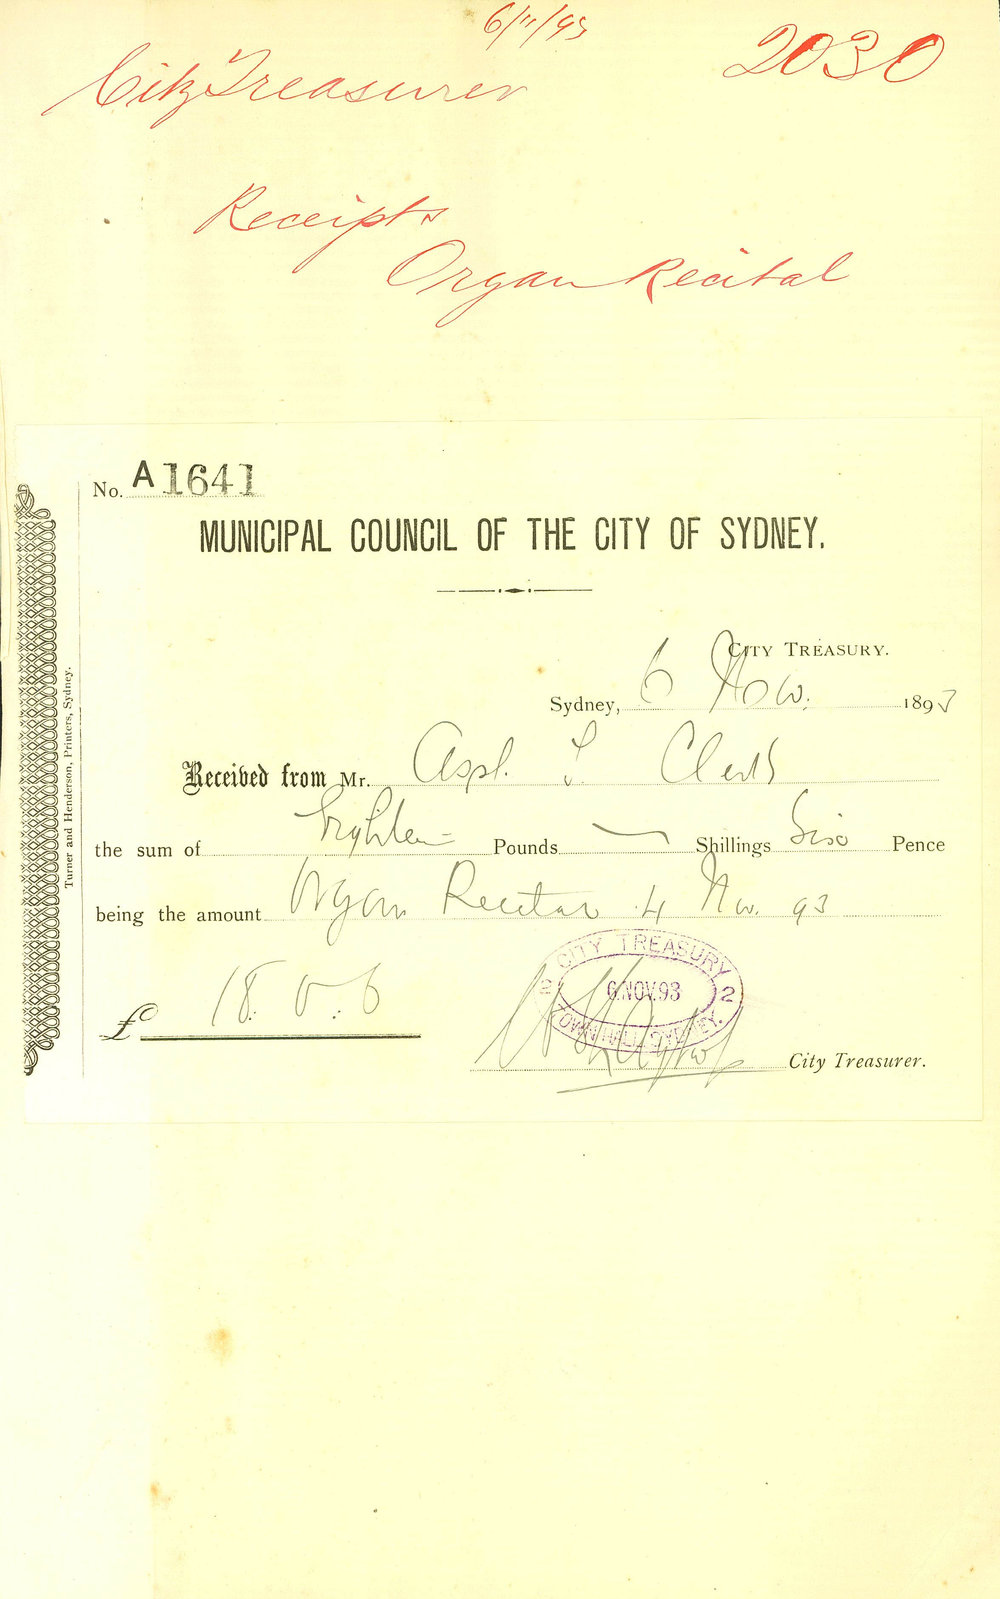 6/11/93
2030
City Treasurer
Receipts
Organ Recital
No. A1641
MUNICIPAL COUNCIL OF THE CITY OF SYDNEY.
CITY TREASURY.
Sydney, 6 Nov. 1893
Received from Mr. Clerk
the sum of Eighteen Pounds — Shillings Six Pence
being the amount Organ Recital 4 Nov. 93
£ 18. 0. 6
CITY TREASURY
6 NOV. 93
2
TOWN HALL, SYDNEY.
City Treasurer.
Turner and Henderson, Printers, Sydney.